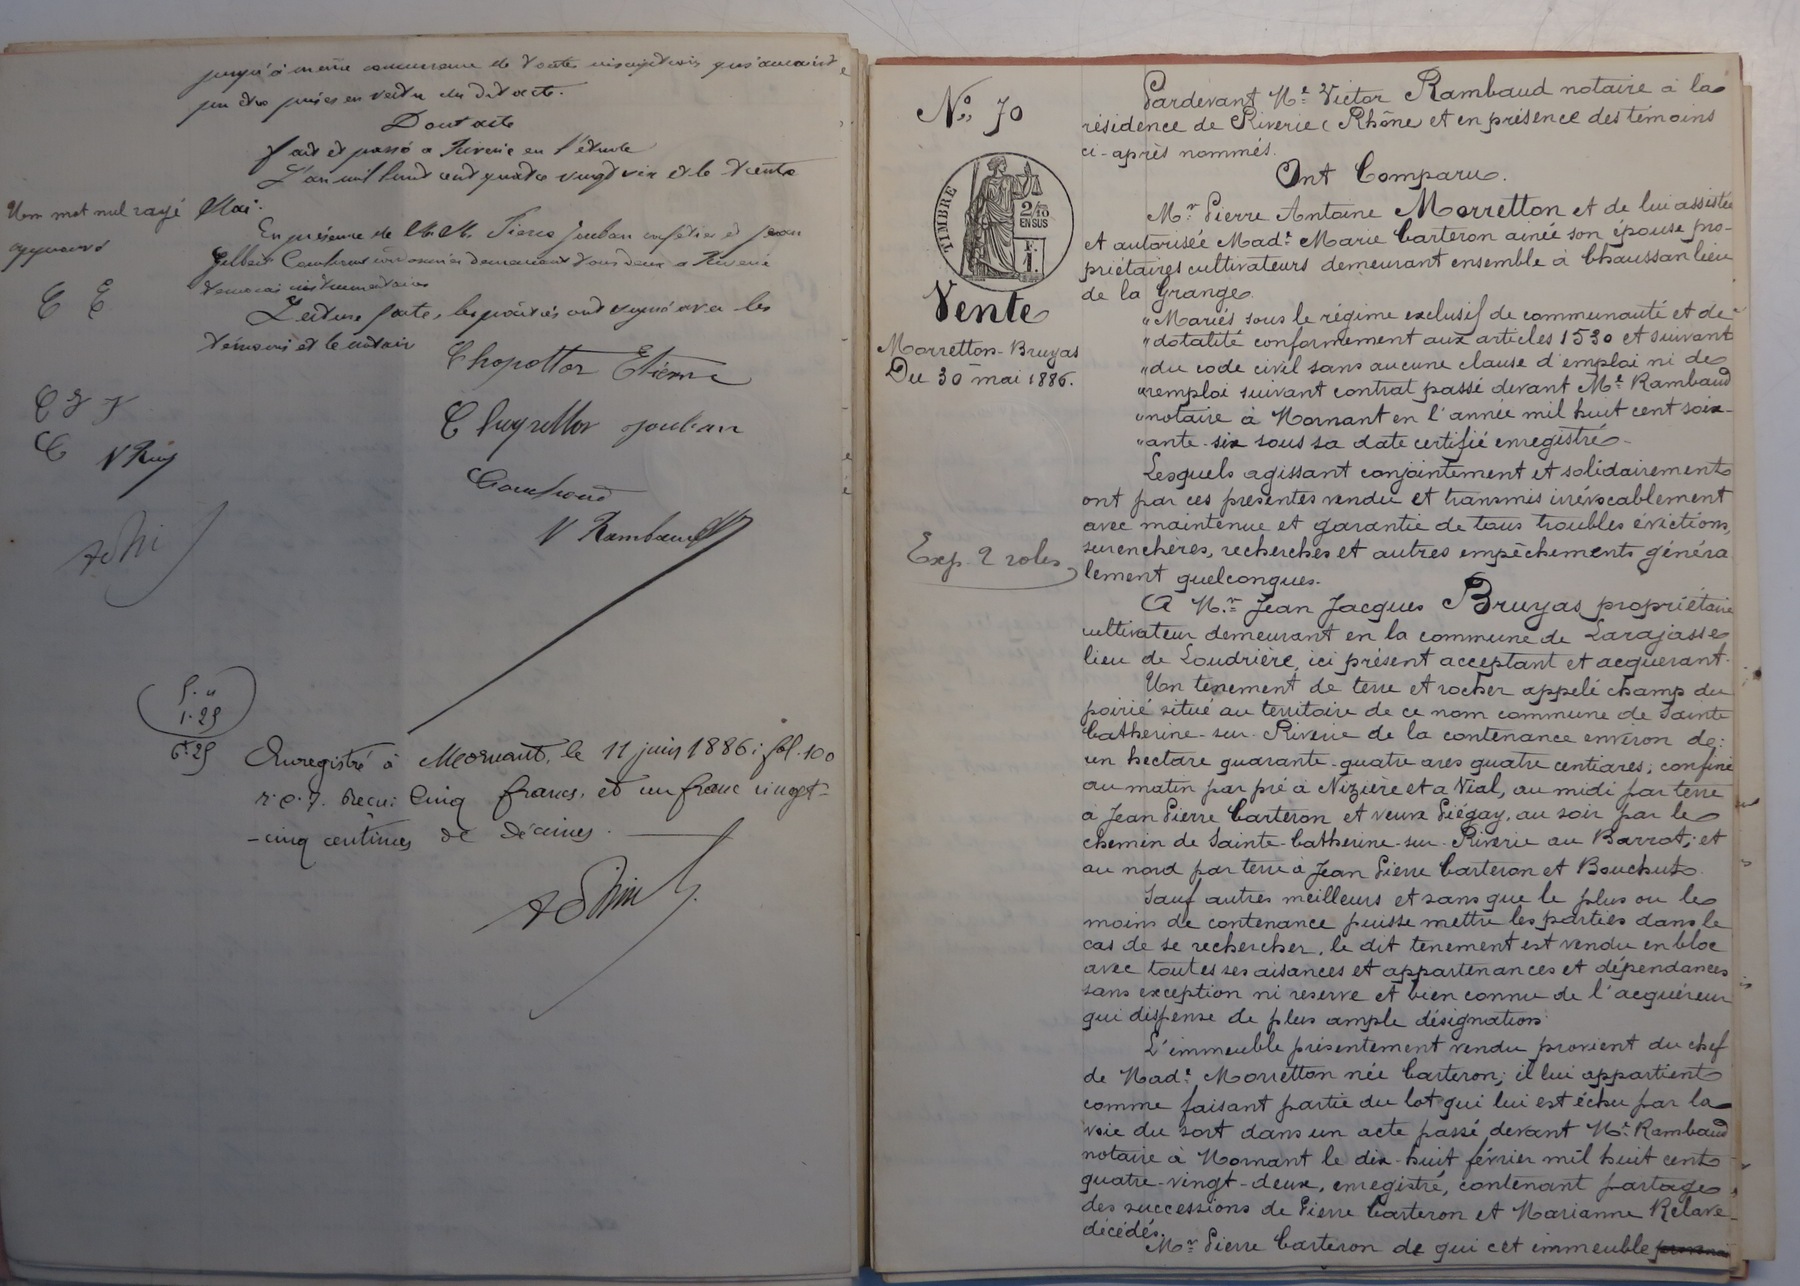 jusqu'à même concurrence de toutes inscriptions qui auraient
pu être prises en vertu du dit acte.
Dont acte
fait et passé à Riverie en l'étude
L'an mil huit cent quatre vingt six et le trente
Mai.
Un mot nul rayé
approuvé
En présence de M.M. Pierre Jouban cafetier et Jean
demeurant tous deux à Riverie
témoins instrumentaires
Lecture faite, les parties ont signé avec les
témoins et le notaire
C E
Chopottor Etienne
C J
C
V R
Jouban
V Rambaud
5. "
1.25
6f.25
Enregistré à Mornant, le 11 juin 1886, fol. 100
r. c. 7. Reçu: Cinq francs, et un franc vingt-
-cinq centimes de décimes.
No. 70
TIMBRE
2/10
EN SUS
F.
1.
Vente
Morretton-Bruyas
Du 30 mai 1886.
Exp. 2 roles
Pardevant Me. Victor Rambaud notaire à la
résidence de Riverie (Rhône et en présence des témoins
ci-après nommés.
Ont Comparu.
Mr. Pierre Antoine Morretton et de lui assistée
et autorisée Made. Marie Carteron ainée son épouse pro-
priétaires cultivateurs demeurant ensemble à Chaussan lieu
de la Grange.
"Mariés sous le régime exclusif de communauté et de
"dotalité conformement aux articles 1530 et suivant
"du code civil sans aucune clause d'emploi ni de
"remploi suivant contrat passé devant Me. Rambaud
"notaire à Mornant en l'année mil huit cent soix-
"ante-six sous sa date certifié enregistré.
Lesquels agissant conjointement et solidairement
ont par ces présentes vendu et transmis irrévocablement
avec maintenue et garantie de tous troubles évictions,
surenchères, recherches et autres empêchements généra
lement quelconques.
A Mr. Jean Jacques Bruyas propriétaire
cultivateur demeurant en la commune de Larajasse
lieu de Loudrière, ici présent acceptant et acquerant.
Un tenement de terre et rocher appelé champ du
poirié situé au territoire de ce nom commune de Sainte
Catherine-sur-Riverie de la contenance environ de:
un hectare quarante-quatre ares quatre centiares; confiné
au matin par pré à Nizière et a Vial, au midi par terre
à Jean Pierre Carteron et veuve Piégay, au soir par le
chemin de Sainte-Catherine-sur-Riverie au Barrot; et
au nord par terre à Jean Pierre Carteron et Bouchut.
Sauf autres meilleurs et sans que le plus ou le
moins de contenance puisse mettre les parties dans le
cas de se rechercher, le dit tenement est vendu en bloc
avec toutes ses aisances et appartenances et dépendances
sans exception ni reserve et bien connu de l'acquéreur
qui dispense de plus ample désignation.
L'immeuble présentement vendu provient du chef
de Made. Morretton née Carteron; il lui appartient
comme faisant partie du lot qui lui est échu par la
voie du sort dans un acte passé devant Me. Rambaud
notaire à Mornant le dix-huit février mil huit cent
quatre-vingt-deux, enregistré, contenant partage
des successions de Pierre Carteron et Marianne Relave
décédés.
Mr. Pierre Carteron de qui cet immeuble